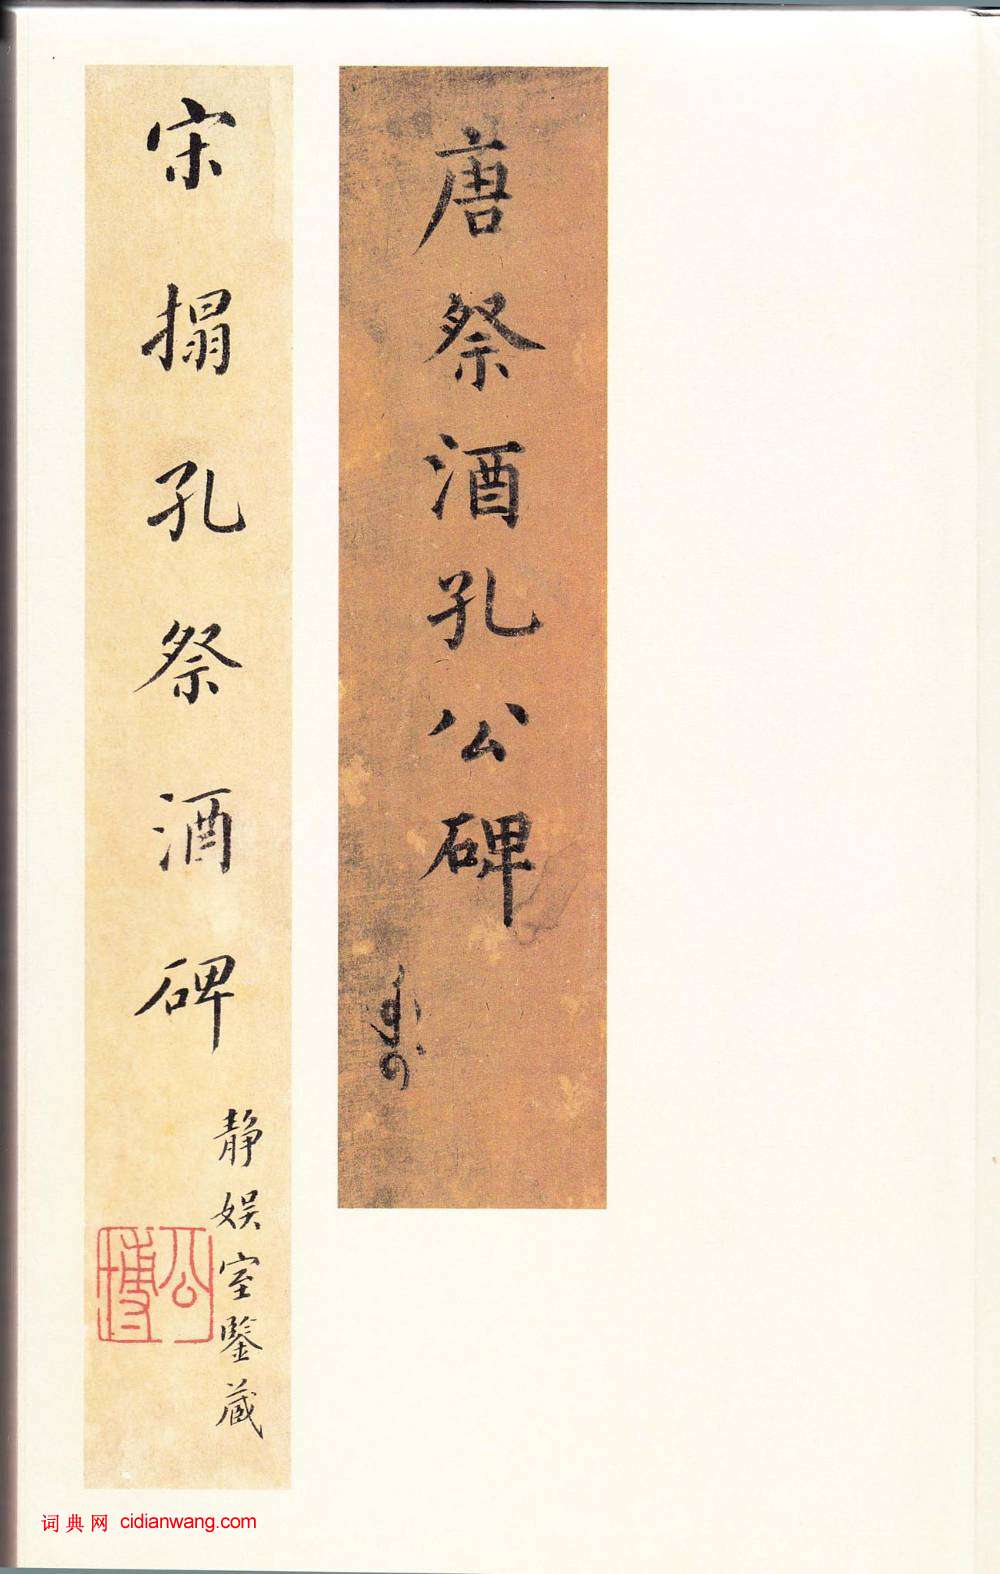 唐祭酒孔公碑
宋搨孔祭酒碑
静娱室鑒藏
公博
词典网 cidianwang.com